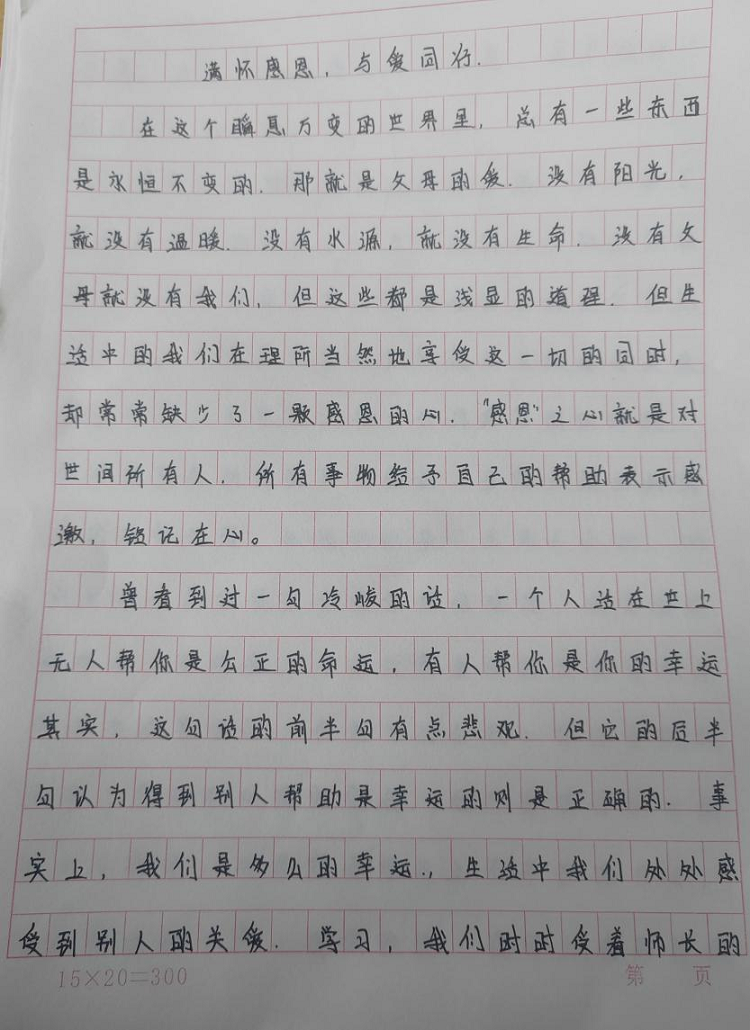 满怀感恩，与爱同行.
在这个瞬息万变的世界里，总有一些东西
是永恒不变的．那就是父母的爱．没有阳光，
就没有温暖．没有水源，就没有生命．没有父
母就没有我们，但这些都是浅显的道理．但生
活中的我们在理所当然地享受这一切的同时，
却常常缺少了一颗感恩的心．"感恩"之心就是对
世间所有人．所有事物给予自己的帮助表示感
激，铭记在心。
曾看到过一句冷峻的话，一个人活在世上
无人帮你是公正的命运，有人帮你是你的幸运
其实，这句话的前半句有点悲观．但它的后半
句认为得到别人帮助是幸运的则是正确的．事
实上，我们是多么的幸运.，生活中我们处处感
受到别人的关爱．学习，我们时时受着师长的
15×20=300 第 页